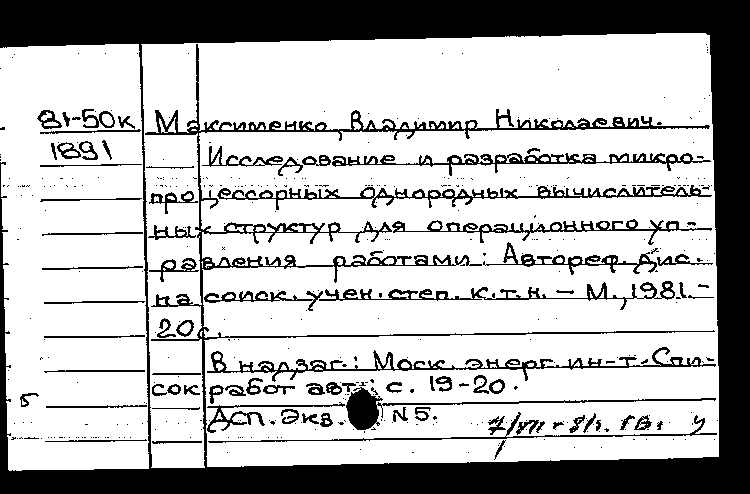 81-50к Максименко, Владимир Николаевич.
1891 Исследование и разработка микро-
процессорных однородных вычислитель-
ных структур для операционного уп-
равления работами: Автореф. дис.
на соиск. учен. степ. к.т.н. – М., 1981.-
20с.
В надзаг.: Моск. энерг. ин-т.-Спи-
сок работ авт.: с. 19-20.
5
Дсп. Экз. N5.